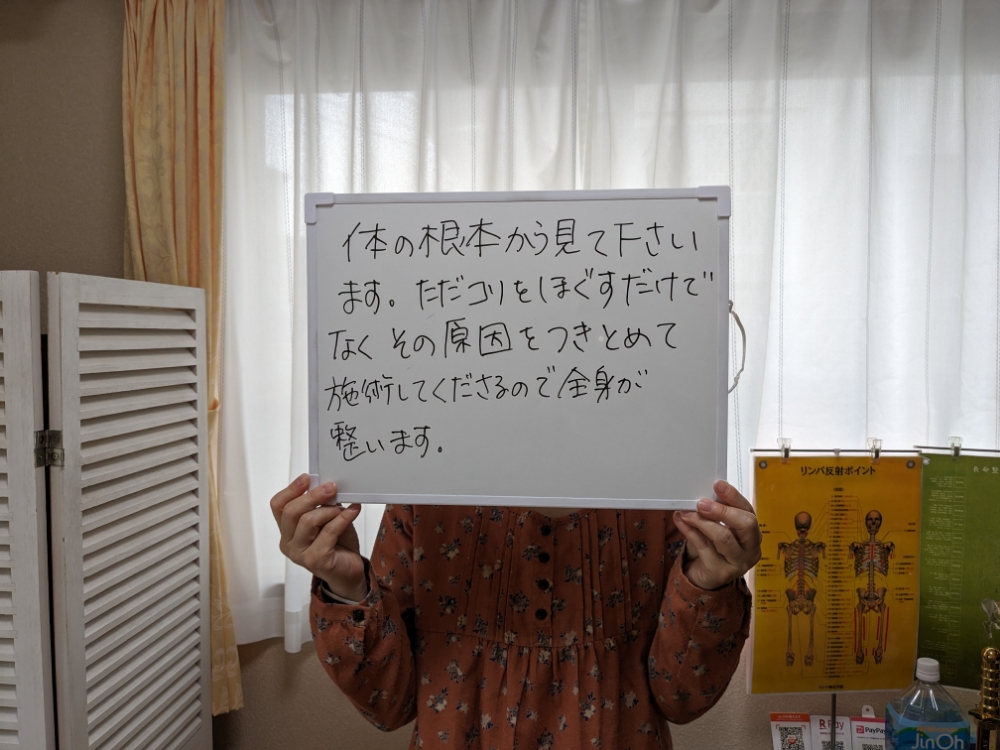 体の根本から見て下さい
ます。ただコリをほぐすだけで
なくその原因をつきとめて
施術してくださるので全身が
整います。
リンパ反射ポイント
R Pay
PayPay
JinOh